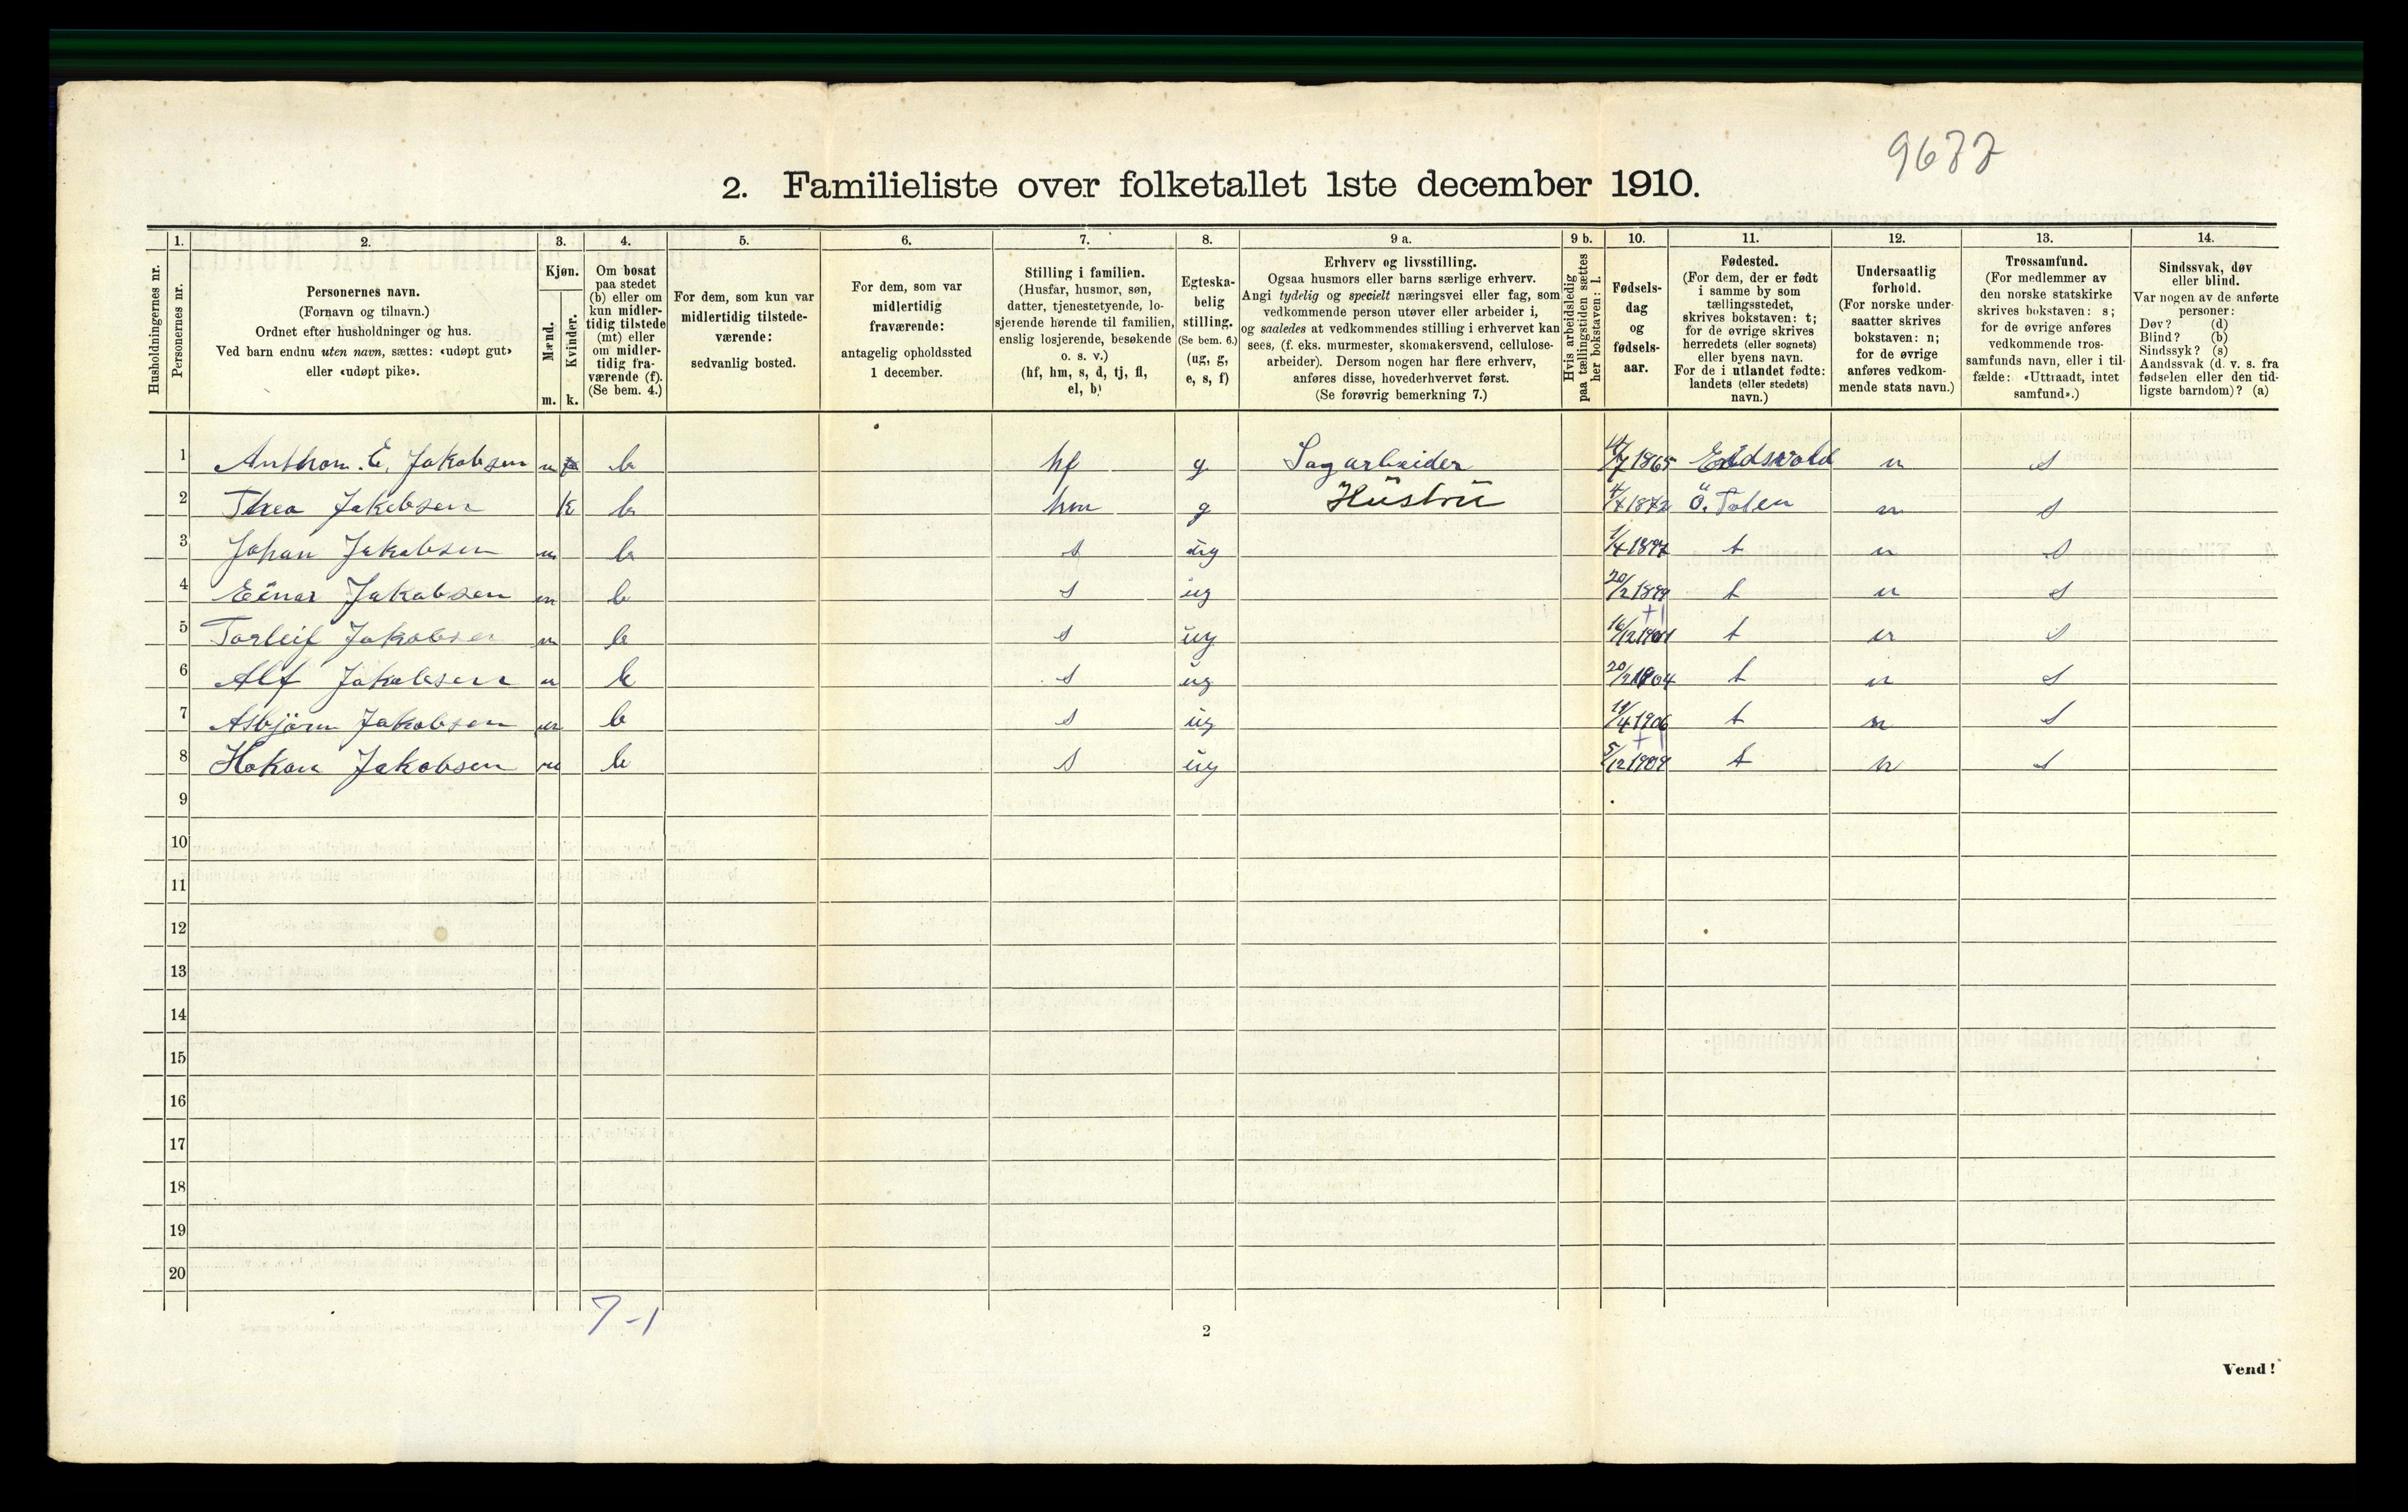 9677
2. Familieliste over folketallet 1ste december 1910.
Husholdningernes nr.
1. Personernes nr.
2. Personernes navn.
(Fornavn og tilnavn.)
Ordnet efter husholdninger og hus.
Ved barn endnu uten navn, sættes: «udøpt gut»
eller «udøpt pike».
3. Kjøn.
Mænd. m.
Kvinder. k.
4. Om bosat
paa stedet
(b) eller om
kun midler-
tidig tilstede
(mt) eller
om midler-
tidig fra-
værende (f).
(Se bem. 4.)
5. For dem, som kun var
midlertidig tilstede-
værende:
sedvanlig bosted.
6. For dem, som var
midlertidig
fraværende:
antagelig opholdssted
1 december.
7. Stilling i familien.
(Husfar, husmor, søn,
datter, tjenestetyende, lo-
sjerende hørende til familien,
enslig losjerende, besøkende
o. s. v.)
(hf, hm, s, d, tj, fl,
el, b)
8. Egteska-
belig
stilling.
(Se bem. 6.)
(ug, g,
e, s, f)
9 a. Erhverv og livsstilling.
Ogsaa husmors eller barns særlige erhverv.
Angi tydelig og specielt næringsvei eller fag, som
vedkommende person utøver eller arbeider i,
og saaledes at vedkommendes stilling i erhvervet kan
sees, (f. eks. murmester, skomakersvend, cellulose-
arbeider). Dersom nogen har flere erhverv,
anføres disse, hovederhvervet først.
(Se forøvrig bemerkning 7.)
9 b. Hvis arbeidsledig
paa tællingstiden sættes
her bokstaven: l.
10. Fødsels-
dag
og
fødsels-
aar.
11. Fødested.
(For dem, der er født
i samme by som
tællingsstedet,
skrives bokstaven: t;
for de øvrige skrives
herredets (eller sognets)
eller byens navn.
For de i utlandet fødte:
landets (eller stedets)
navn.)
12. Undersaatlig
forhold.
(For norske under-
saatter skrives
bokstaven: n;
for de øvrige
anføres vedkom-
mende stats navn.)
13. Trossamfund.
(For medlemmer av
den norske statskirke
skrives bokstaven: s;
for de øvrige anføres
vedkommende tros-
samfunds navn, eller i til-
fælde: «Uttraadt, intet
samfund».)
14. Sindssvak, døv
eller blind.
Var nogen av de anførte
personer:
Døv? (d)
Blind? (b)
Sindssyk? (s)
Aandssvak (d. v. s. fra
fødselen eller den tid-
ligste barndom)? (a)
1 Anthon. E. Jakobsen m b hf g Sagarbeider 1865 Eidsvold n s
2 Thea Jakobsen k b hm g Hustru 1872 Ö. Toten n s
3 Johan Jakobsen m b s ug 1/4 1897 t n s
4 Einar Jakobsen m b s ug 20/2 1899 t n s
5 Torleif Jakobsen m b s ug 16/12 1901 t n s
6 Alf Jakobsen m b s ug 20/2 1904 t n s
7 Asbjörn Jakobsen m b s ug 11/4 1906 t n s
8 Hakon Jakobsen m b s ug 5/12 1909 t n s
9
10
11
12
13
14
15
16
17
18
19
20
7-1
2
Vend!